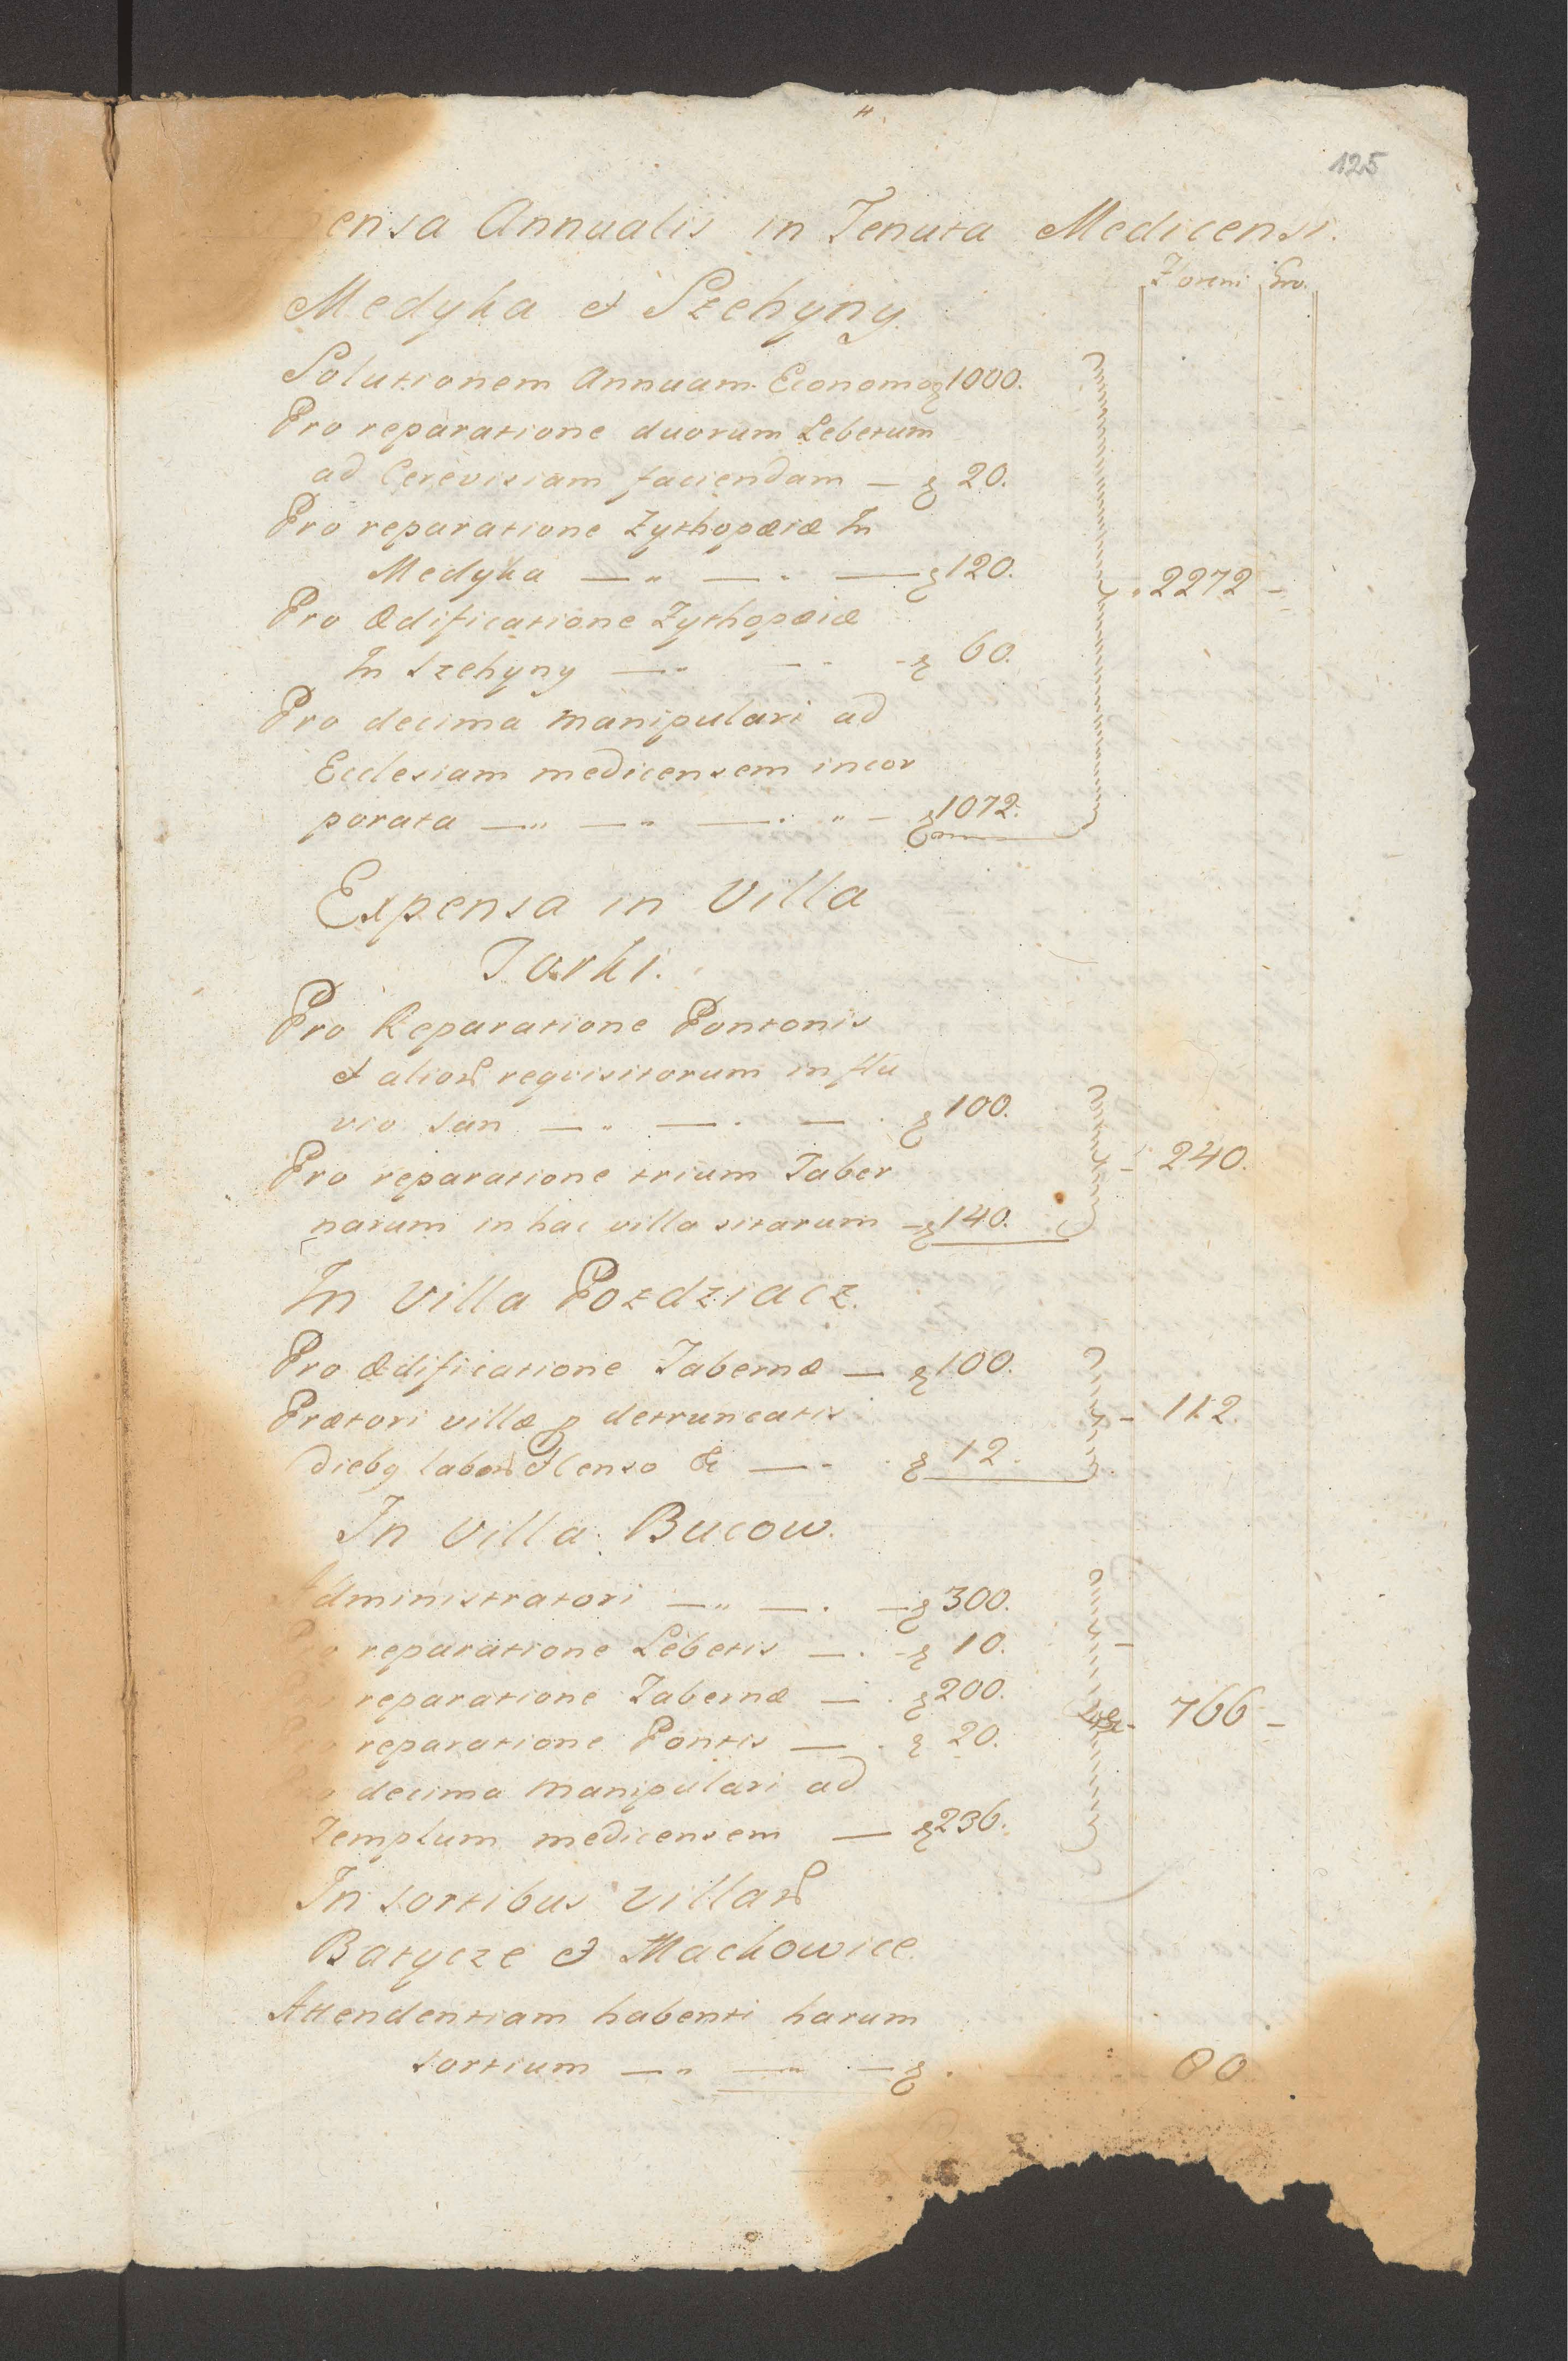 125
ensa Annualis in Tenuta Medicensi.
Floreni Gro.
Medyka et Szehyny.
Solutionem Annuam Economo 1000.
Pro reparatione duorum Lebetum
ad Cerevisiam faciendam — 20.
Pro reparatione Zythopæiæ In
Medyka — " — " — 120.
2272 –
Pro Ædificatione Zythopæiæ
In Szehyny — " — " - 60.
Pro decima manipulari ad
Ecclesiam medicensem incor
porata — " — " — . " – 1072.
Expensa in Villa
Torki.
Pro Reparatione Pontonis
et alior requisitorum in flu
vio San — " — . — . 100.
Pro reparatione trium Taber
240.
narum in hac villa sitarum – 140.
In Villa Pozdziacz.
Pro Ædificatione Tabernæ — 100.
Prætori villæ p detruncatis
– 112.
dieb9 labor Censo &c — - . 12.
In Villa Bucow.
Administratori — " — . — 300.
reparatione Lebetis — . - 10.
reparatione Tabernæ — . 200.
766 –
reparatione Pontis — . 20.
decima manipulari ad
Templum medicensem — 236.
In sortibus villar
Batycze et Machowice
Attendentiam habenti harum
sortium — " — " . — 80